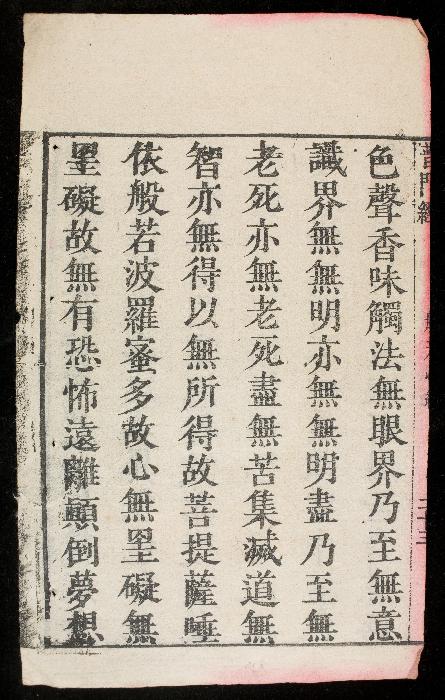 普門經
色聲香味觸法無眼界乃至無意
識界無無明亦無無明盡乃至無
老死亦無老死盡無苦集滅道無
智亦無得以無所得故菩提薩埵
依般若波羅蜜多故心無罣礙無
罣礙故無有恐怖遠離顚倒夢想